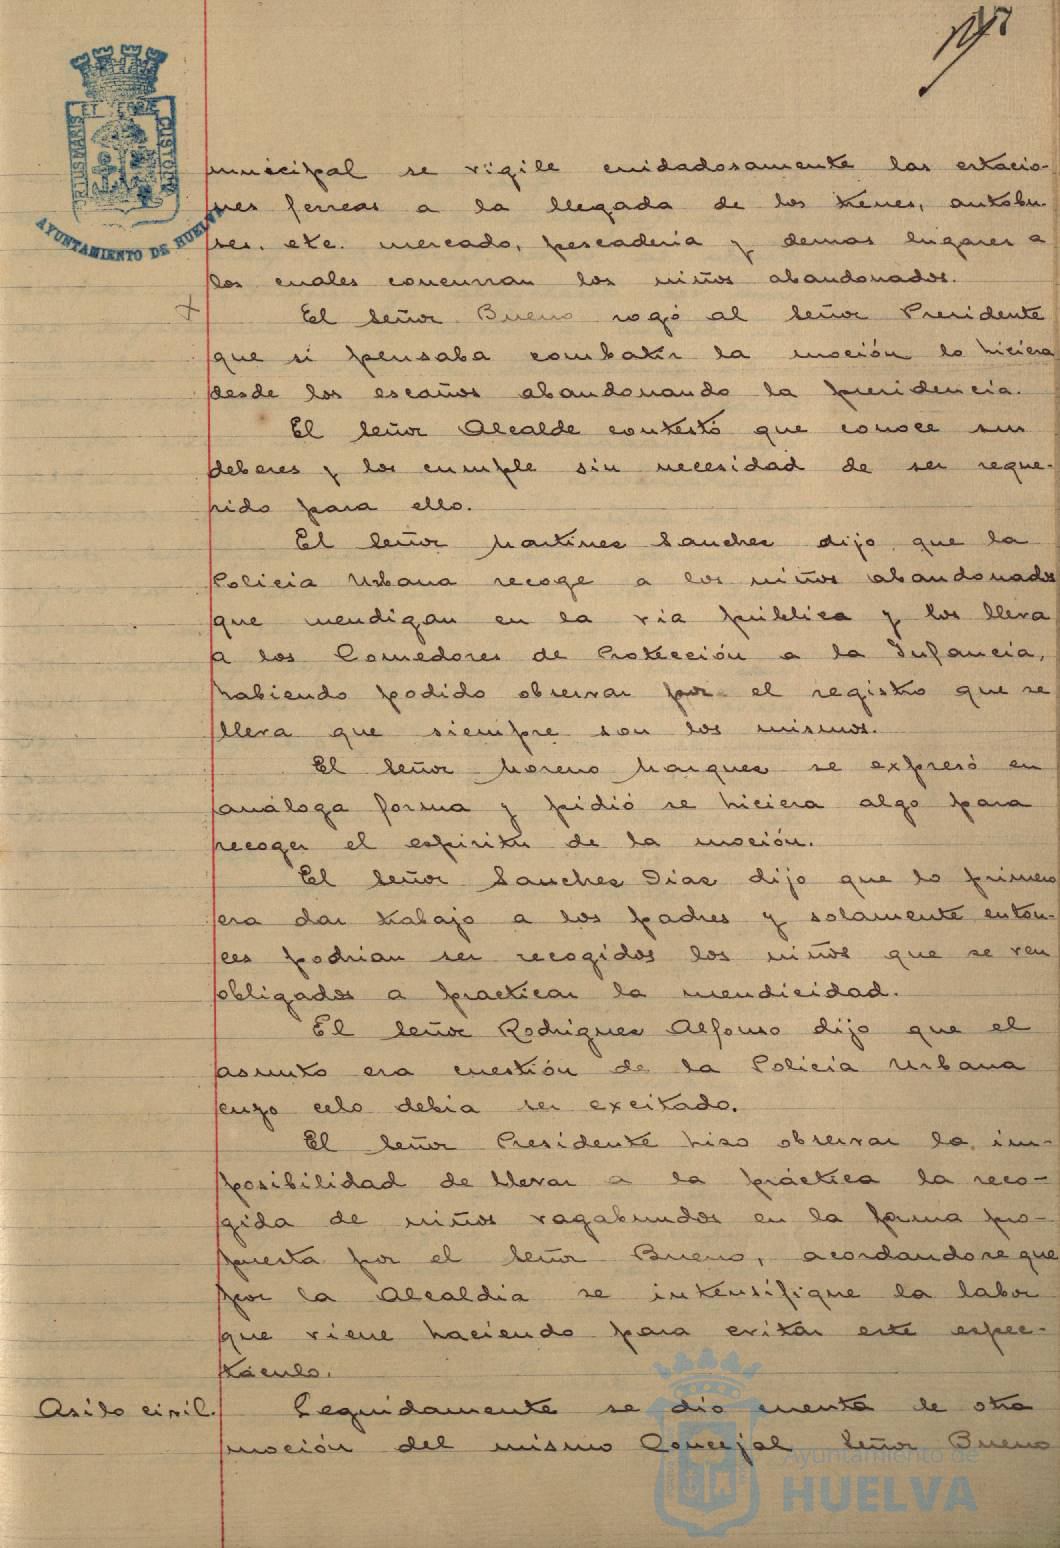 PORTUS MARIS ET TERRE CUSTODIA
AYUNTAMIENTO DE HUELVA
municipal se vigile cuidadosamente las estacio-
nes ferreas a la llegada de los trenes, autobu-
ses. etc. mercado, pescadería y demas lugares a
los cuales concurran los niños abandonados.
El Señor Bueno rogó al Señor Presidente
que si pensaba combatir la moción lo hiciera
desde los escaños abandonando la presidencia.
El Señor Alcalde contestó que conoce sus
deberes y los cumple sin necesidad de ser reque-
rido para ello.
El Señor Martinez Sanchez dijo que la
Policia Urbana recoge a los niños abandonados
que mendigan en la via pública y los lleva
a los Comedores de Protección a la Infancia,
habiendo podido observar por el registro que se
lleva que siempre son los mismos.
El Señor Moreno Marquez se expresó en
análoga forma y pidió se hiciera algo para
recoger el espiritu de la moción.
El Señor Sanchez Diaz dijo que lo primero
era dar trabajo a los padres y solamente enton-
ces podrian ser recogidos los niños que se ven
obligados a practicar la mendicidad.
El Señor Rodriguez Alfonso dijo que el
asunto era cuestión de la Policia Urbana
cuyo celo debia ser excitado.
El Señor Presidente hizo observar la im-
posibilidad de llevar a la práctica la reco-
gida de niños vagabundos en la forma pro-
puesta por el Señor Bueno, acordandose que
por la Alcaldia se intensifique la labor
que viene haciendo para evitar este espec-
táculo.
Asilo civil. Seguidamente se dió cuenta de otra
moción del mismo Concejal Señor Bueno
Ayuntamiento de
HUELVA